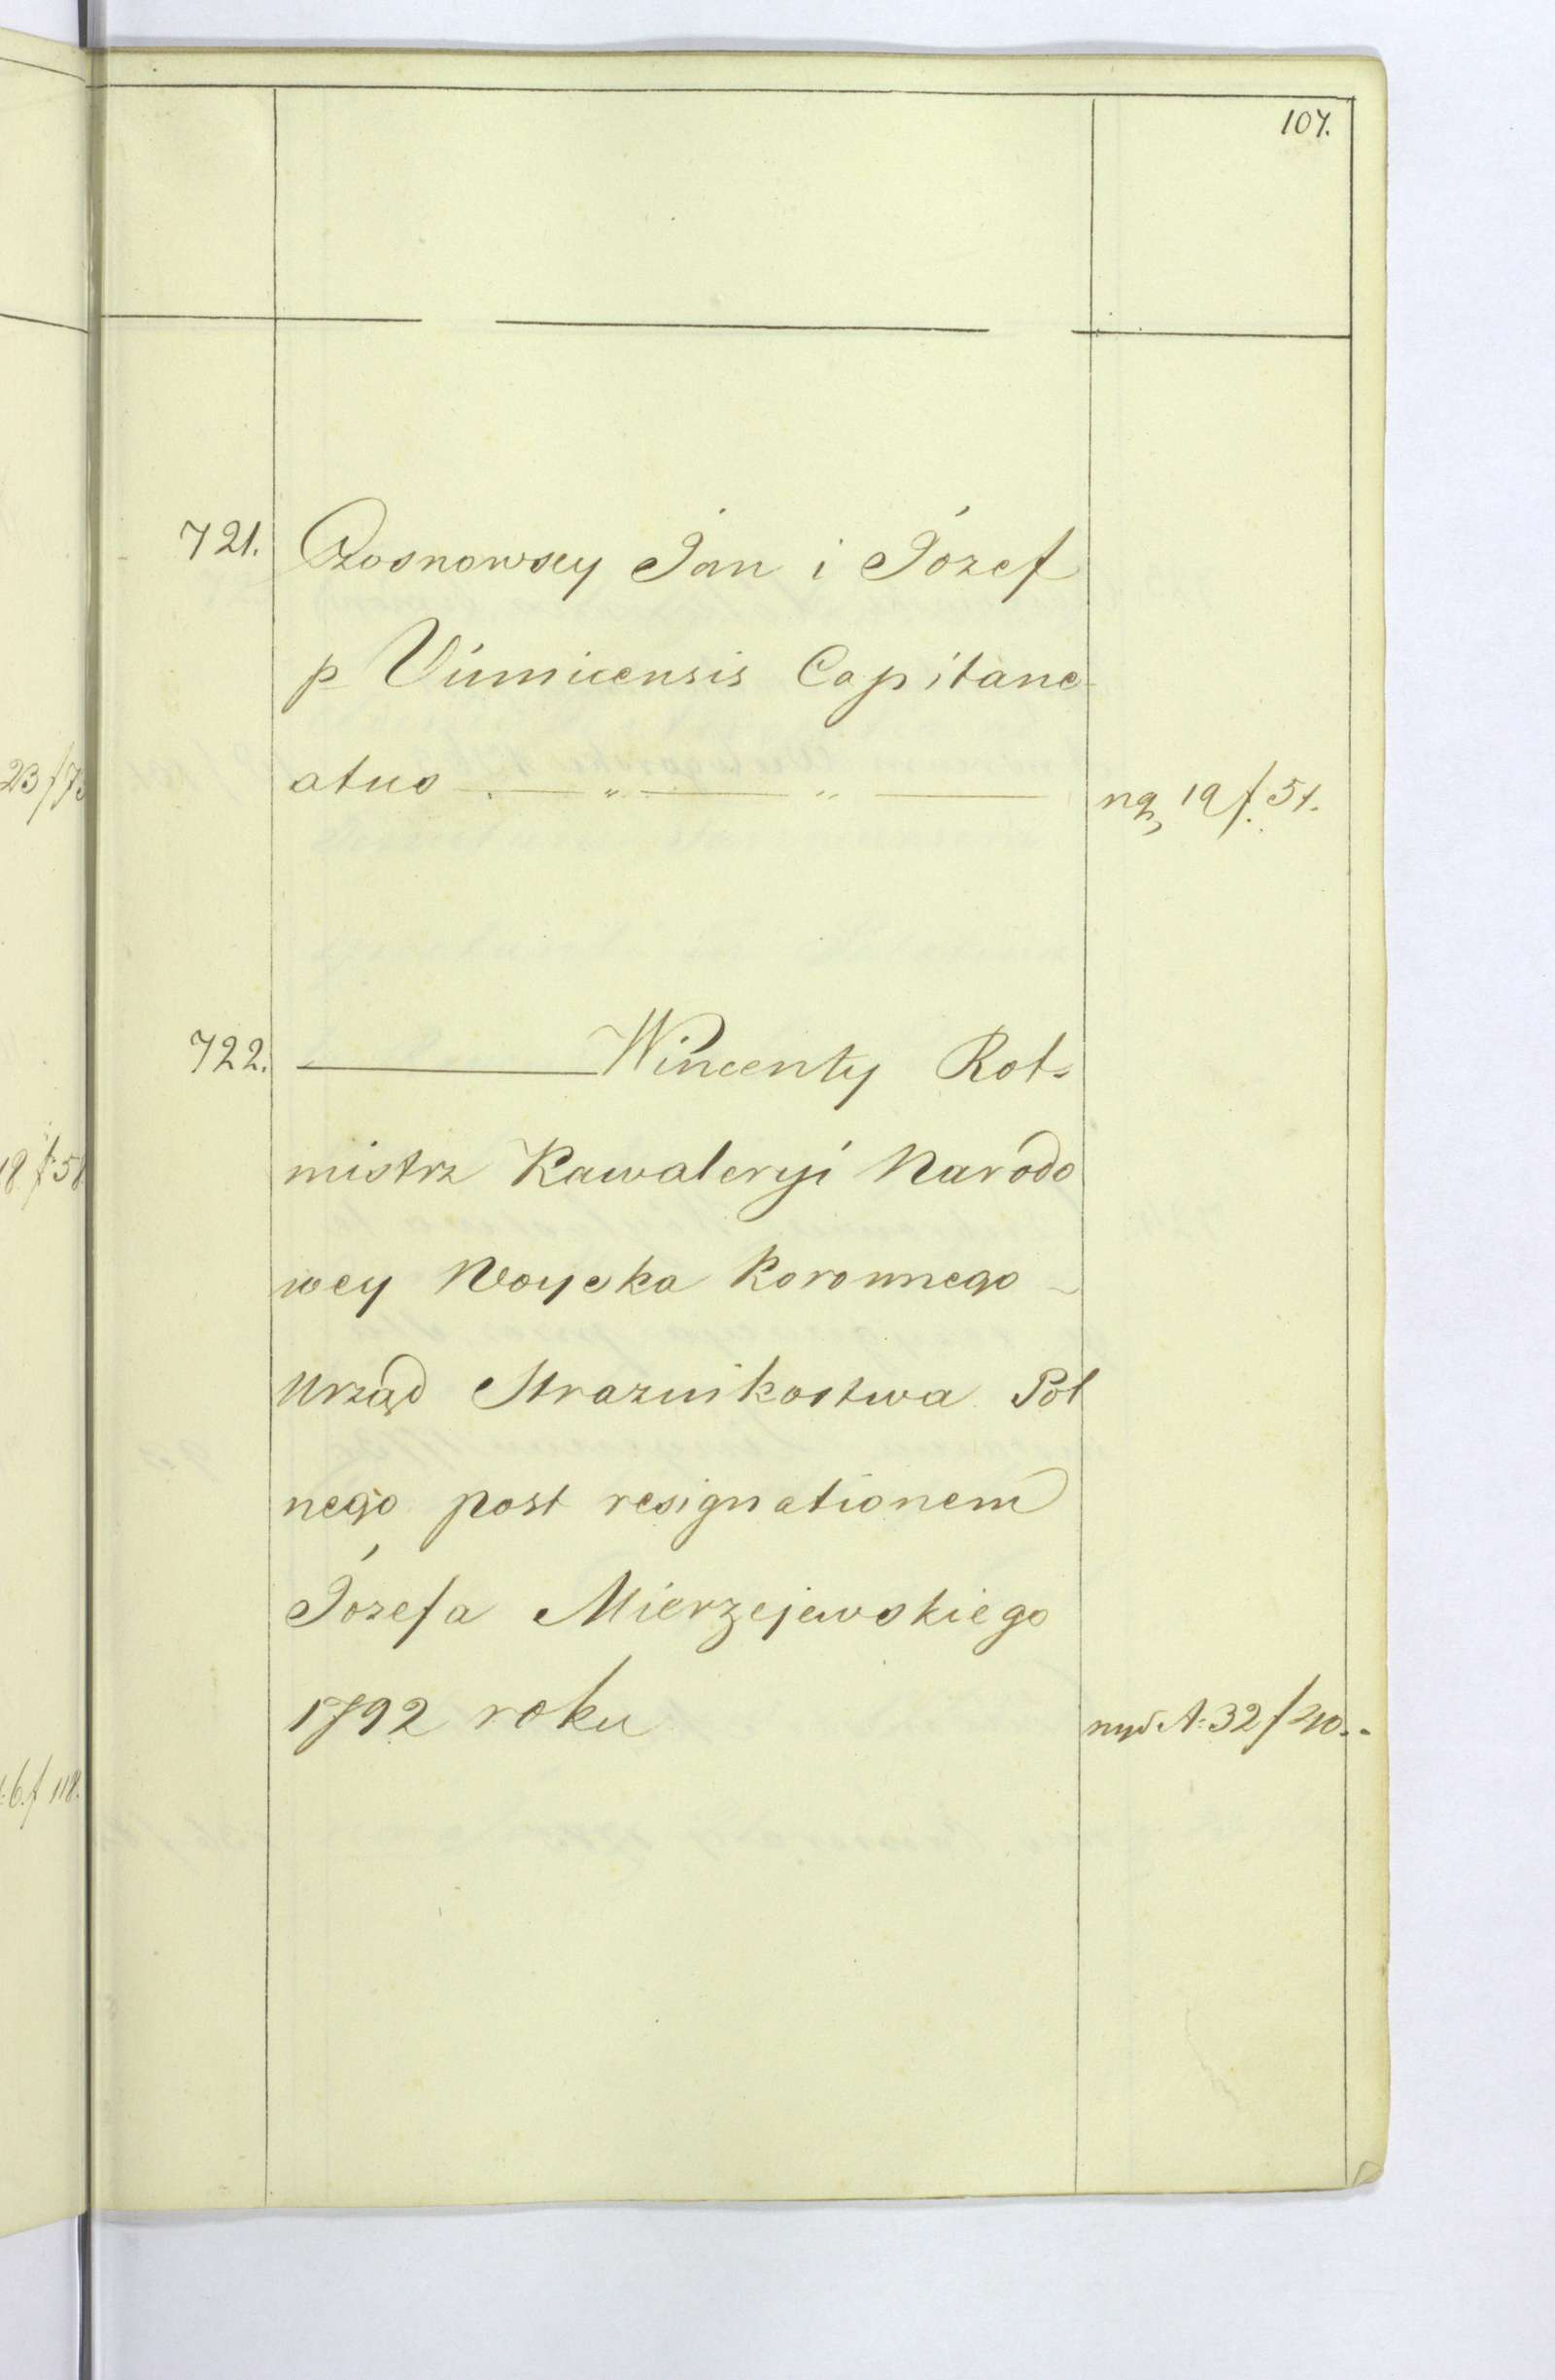 107.
721. Czosnowscy Jan i Józef
p Vinnicensis Capitane
atus — " — " — 19 f. 51.
722. ——— Wincenty Rot=
mistrz Kawaleryi Narodo
wey Woyska Koronnego
Urząd Straznikostwa Pol
nego post resignationem
Józefa Mierzejewskiego
1792 roku A: 32 f 40.
23 f 73
18 f: 58
:6. f 118.